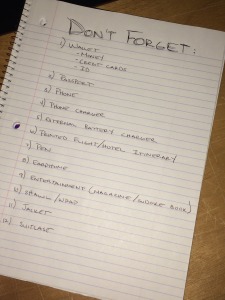 DON'T FORGET:
1) WALLET
- MONEY
- CREDIT CARDS
- ID
2) PASSPORT
3) PHONE
4) PHONE CHARGER
5) EXTERNAL BATTERY CHARGER
6) PRINTED FLIGHT/HOTEL ITINERARY
7) PEN
8) EARPHONE
9) ENTERTAINMENT (MAGAZINE/ BOOK)
10) SHAWL/WRAP
11) JACKET
12) SUITCASE